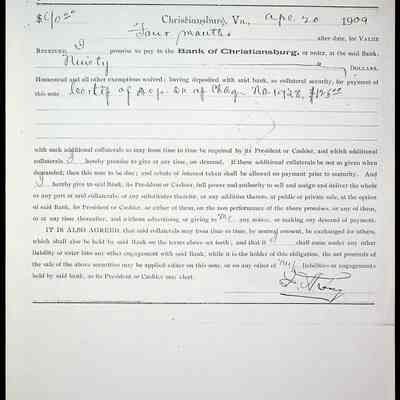 $90.00 Christiansburg, Va., Apr. 20 1909
Four months after date, for VALUE
RECEIVED, I promise to pay to the Bank of Christiansburg, or order, at the said Bank,
Ninety DOLLARS.
Homestead and all other exemptions waived; having deposited with said bank, as collateral security, for payment of
this note No. 1938, $125.00
with such additional collaterals as may from time to time be required by its President or Cashier, and which additional
collaterals I hereby promise to give at any time, on demand. If these additional collaterals be not so given when
demanded, then this note to be due; and rebate of interest taken shall be allowed on payment prior to maturity. And
I hereby give to said Bank, its President or Cashier, full power and authority to sell and assign and deliver the whole
or any part of said collaterals, or any substitutes therefor, or any additions thereto, at public or private sale, at the option
of said Bank, its President or Cashier, or either of them, on the non-performance of the above promises, or any of them,
or at any time thereafter, and without advertising or giving to me any notice, or making any demand of payment.
IT IS ALSO AGREED, that said collaterals may from time to time, by mutual consent, be exchanged for others,
which shall also be held by said Bank on the terms above set forth; and that if I shall come under any other
liability or enter into any other engagement with said Bank, while it is the holder of this obligation, the net proceeds of
the sale of the above securities may be applied either on this note, or on any other of my liabilities or engagements
held by said bank, as its President or Cashier may elect.